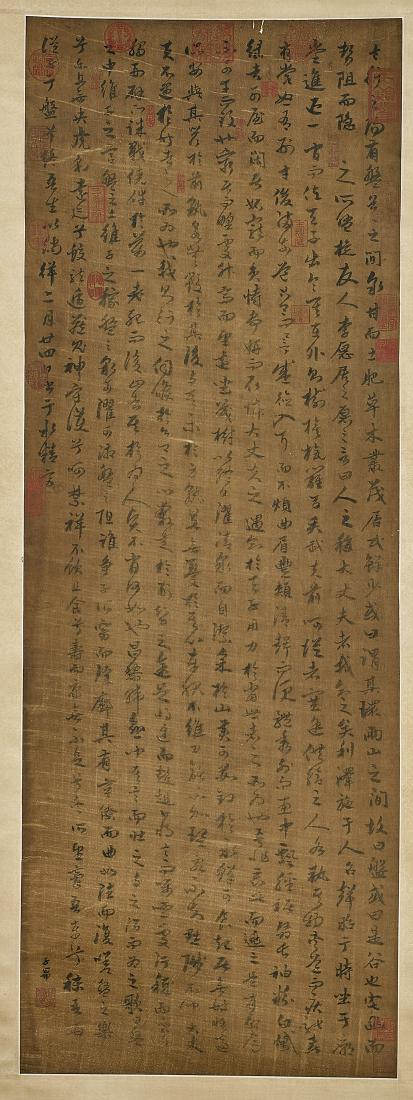 太行之陽有盤谷之間泉甘而土肥草木叢茂居民鮮少或曰謂其環兩山之間故曰盤或曰是谷也宅幽而
勢阻而隱之所盤旋友人李愿居之愿之言曰人之稱大丈夫者我知之矣利澤施于人名聲昭于時坐于廟
堂進退百官而佐天子出令其在外則樹旗旄羅弓矢武夫前呵從者塞途供給之人各執其物夾道而疾馳喜
有賞怒有刑才俊滿前道古今而譽盛德入耳而不煩曲眉豐頰清聲而便體秀外而惠中飄輕裾翳長袖粉白黛
綠者列屋而閑居妒寵而負恃爭妍而取憐大丈夫之遇知於天子用力於當世者之所為也吾非惡此而逃之是有命焉
不可幸而致也窮居而野處升高而望遠坐茂樹以終日濯清泉而自潔采於山美可茹釣於水鮮可食起居無時惟適
之安與其譽於前孰若無毀於其後與其樂於身孰若無憂於其心車服不維刀鋸不加理亂不知黜陟不聞大丈
夫不遇於時者之所為也我則行之伺候於公卿之門奔走於形勢之途足將進而趑趄口將言而囁嚅處污穢而不羞
觸刑辟而誅戮僥倖於萬一老死而後止者其於為人賢不肖何如也昌黎韓愈聞其言而壯之與之酒而為之歌曰盤
之中維子之宮盤之土維子之稼盤之泉可濯可沿盤之阻誰爭子所窈而深廓其有容繚而曲如往而復嗟盤之樂
兮樂且無央虎豹遠迹兮蛟龍遁藏鬼神守護兮呵禁不祥飲且食兮壽而康無不足兮奚所望膏吾車兮秣吾馬
從子于盤兮終吾生以徜徉二月廿四日書于水精宮
子昂